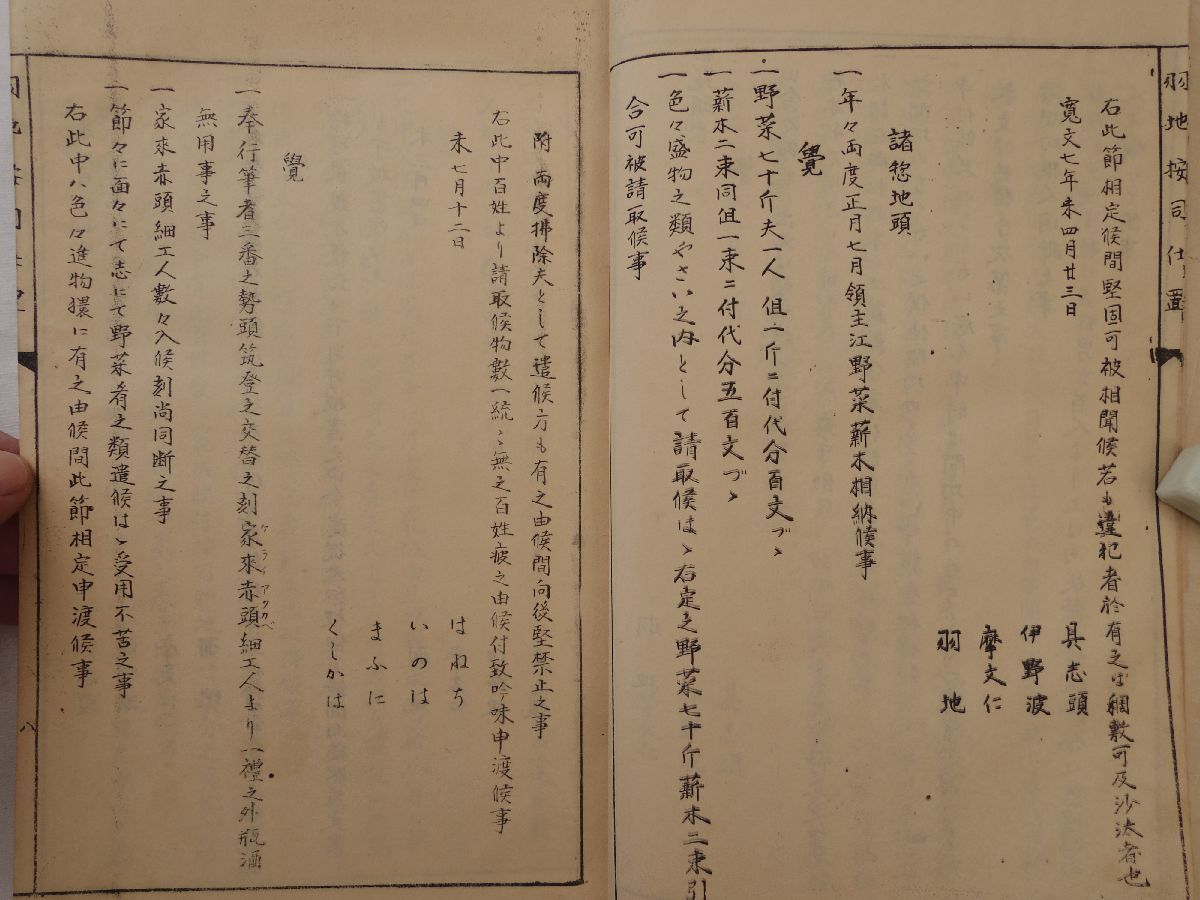 羽地按司仕置
右此節相定候間堅固可被相聞候若も違犯者於有之ば稠敷可及沙汰者也
寛文七年未四月廿三日
具志頭
伊野波
摩文仁
羽地
諸惣地頭
覺
一年々両度正月七月領主江野菜薪木相納候事
一野菜七十斤夫一人但一斤ニ付代分百文づゝ
一薪木二束同但一束ニ付代分五百文づゝ
一色々盛物之類やさい之内として請取候はゝ右定之野菜七十斤薪木二束引
合可被請取候事
附両度掃除夫として遣候方も有之由候間向後堅禁止之事
右此中百姓より請取候物數一統ゝ無之百姓疲之由候付致吟味申渡候事
未七月十二日
はねち
いのは
まふに
くしかは
覺
一奉行筆者三番之勢頭筑登之交替之刻家來赤頭細工人より一禮之外瓶酒
ケライアクカベ
無用事之事
一家來赤頭細工人數々入候刻尚同断之事
一節々に面々にて志にて野菜肴之類遣候はゝ受用不苦之事
右此中ハ色々進物猥に有之由候間此節相定申渡候事
八